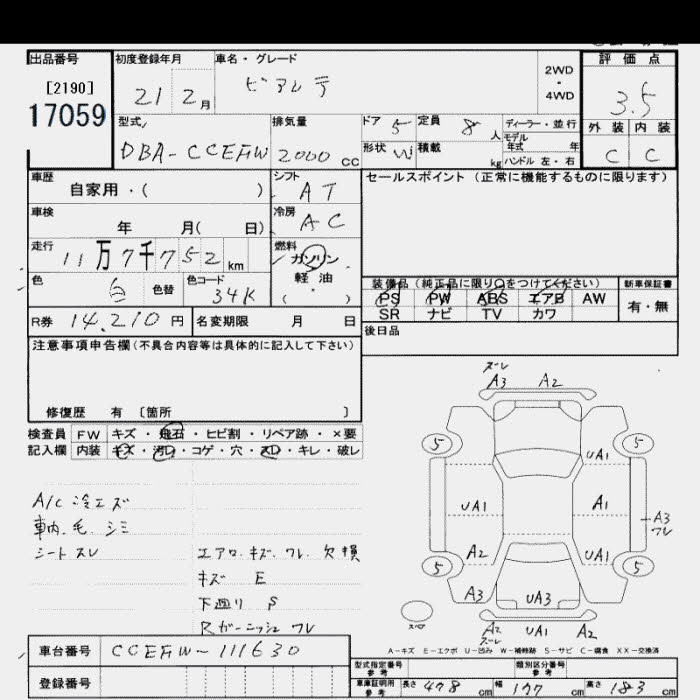 出品番号 初度登録年月 車名・グレード 評価点
[2190] 21 2月 ビアンテ 2WD・4WD 3.5
17059
型式 排気量 ドア 5 定員 8人 ディーラー・並行 外装 内装
DBA-CCEFW 2000cc 形状 W 積載 kg モデル年式 年 C C
ハンドル 左・右
車歴 シフト セールスポイント (正常に機能するものに限ります)
自家用・( ) AT
車検 冷房
年 月( 日) AC
走行 燃料
11万7千752km ガソリン
色 白 色替 色コード 34K 軽油
( ・ )
装備品(純正品に限り○をつけてください) 新車保証書
PS PW ABS エアB AW 有・無
SR ナビ TV カワ
R券 14,210円 名変期限 月 日
後日品
注意事項申告欄(不具合内容等は具体的に記入して下さい)
修復歴 有 〔箇所 〕
検査員 FW キズ・飛石・ヒビ割・リペア跡・×要
記入欄 内装 キズ・汚れ・コゲ・穴・スレ・キレ・破レ
A/C 冷エズ
車内.毛.シミ
シートスレ エアロ.キズ.ワレ.欠損
キズ E
下廻リ S
Rガーニッシュ ワレ
ズレ
A3 A2
5 5
UA1
UA1 A1
A3
ワレ
A2 UA1
5 5
A3 UA3
スペア
A2 UA1 A2
ズレ
A-キズ E-エクボ U-凹み W-補修跡 S-サビ C-腐食 XX-交換済
車台番号 CCEFW-111630
型式指定番号 参考 類別区分番号 参考
登録番号
車庫証明用 参考 長さ 478cm 幅 177cm 高さ 183cm